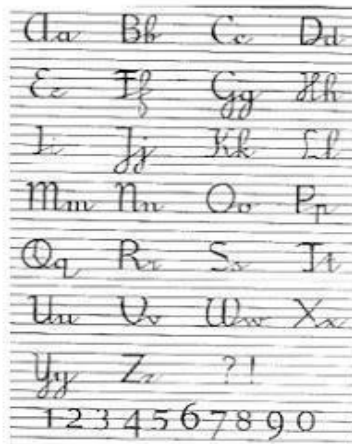 Aa Bb Cc Dd
Ee Ff Gg Hh
Ii Jj Kk Ll
Mm Nn Oo Pp
Qq Rr Ss Tt
Uu Vv Ww Xx
Yy Zz ?!
1234567890